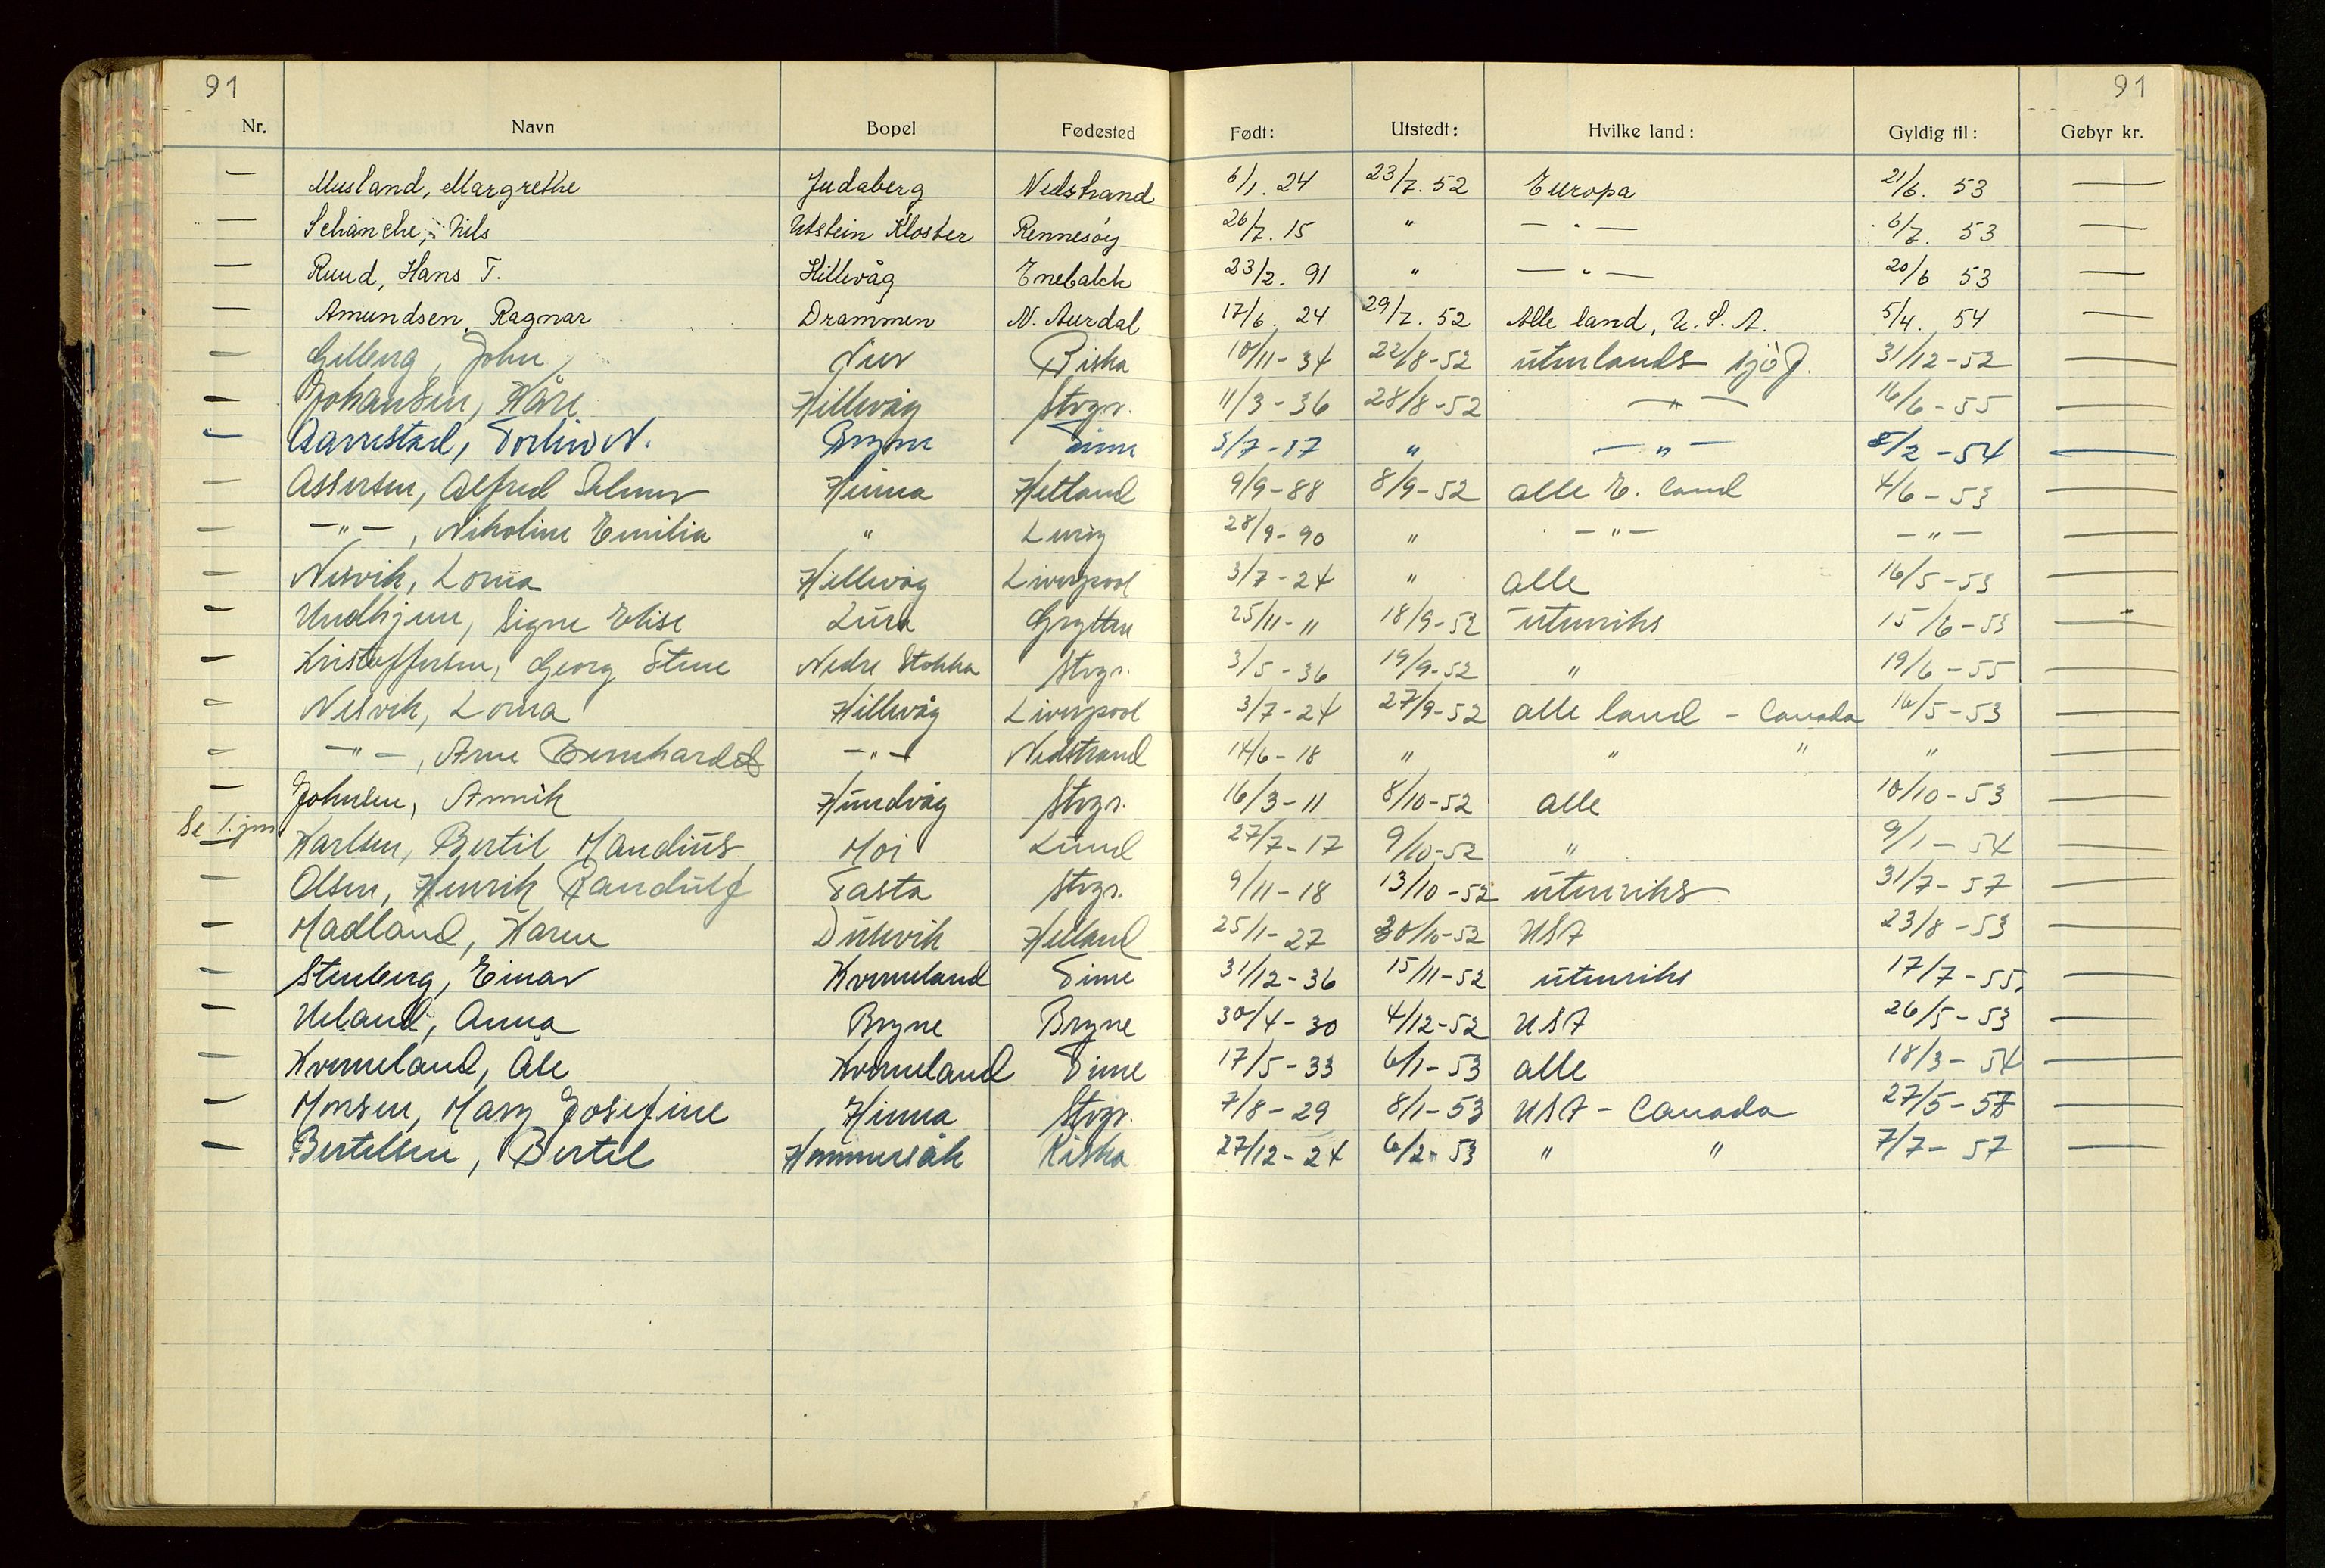 91 91
Nr. Navn Bopel Fødested Født: Utstedt: Hvilke land: Gyldig til: Gebyr kr.
— Musland, Margrethe Judaberg Nedstrand 6/1. 24 23/7. 52 Europa 21/6. 53 —
— Schanche, Nils Utstein Kloster Rennesøy 26/7. 15 " — " — 6/7. 53 —
— Ruud, Hans T. Hillevåg Enebakk 23/2. 91 " — " — 20/6 53 —
— Amundsen, Ragnar Drammen N. Aurdal 17/6. 24 29/7. 52 Alle land, U.S.A. 5/4. 54 —
— Gilberg, John Riska 10/11-34 22/8-52 utenlands sjøf. 31/12-52 —
— Johansen, Kåre Hillevåg Stvgr. 11/3-36 28/8-52 — " — 16/6-55 —
— Aarrestad, N. Bryne Time 3/7-17 " — " — 8/2-54 —
— Assersen, Alfred Hinna Hetland 9/9-88 8/9-52 alle E. land 4/6-53 —
— — " —, Nikoline Emilia " 28/9-90 " — " — — " — —
— Nesvik, Lorna Hillevåg Liverpool 3/7-24 " alle 16/5-53 —
— Undhjem, Signe Elise Lura Grytten 25/11-11 18/9-52 utenriks 15/6-53 —
— Kristoffersen, Georg Stene Nedre Stokka Stvgr. 3/5-36 19/9-52 " 19/6-55 —
— Nesvik, Lorna Hillevåg Liverpool 3/7-24 27/9-52 alle land - Canada 16/5-53 —
— — " —, Arne Bernhard — " — Nedstrand 14/6-18 " " " " —
— Johnsen, Annik Hundvåg Stvgr. 16/3-11 8/10-52 alle 10/10-53 —
Karlsen, Bertil Mandius Moi Lund 27/7-17 9/10-52 " 9/1-54 —
— Olsen, Henrik Randulf Tasta Stvgr. 9/11-18 13/10-52 utenriks 31/7-57 —
— Madland, Karen Dusevik Hetland 25/1-27 30/10-52 USA 23/8-53 —
— Stenberg, Einar Kverneland Time 31/12-36 15/11-52 utenriks 17/7-55. —
— Ueland, Anna Bryne Bryne 30/4-30 4/12-52 USA 26/5-53 —
— Kverneland, Åse Kverneland Time 17/5-33 6/1-53 alle 18/3-54 —
— Monsen, Mary Josefine Hinna Stvgr. 7/8-29 8/1-53 USA - Canada 27/5-58 —
— Bertelsen, Bertel Hommersåk Riska 27/12-24 6/2-53 " " 7/7-57 —